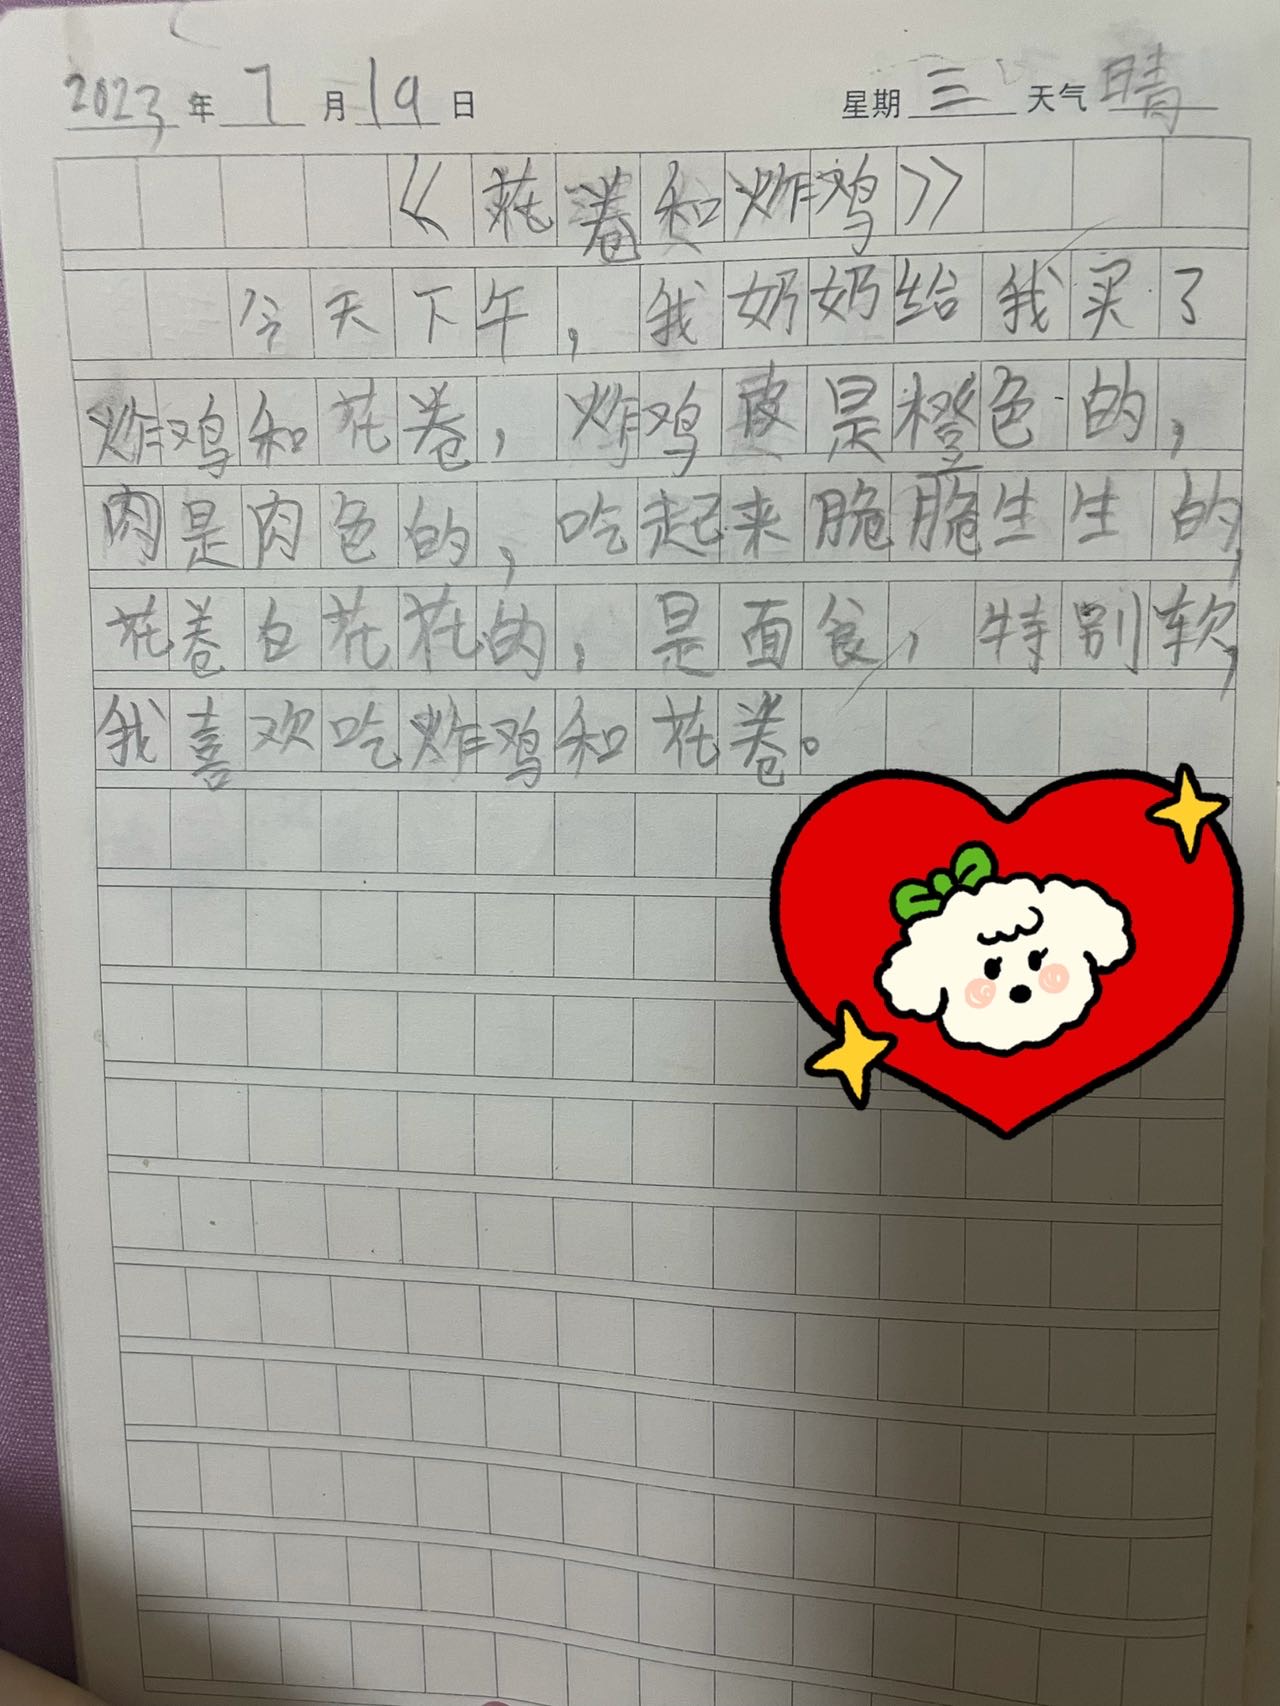 2023年7月19日 星期三 天气晴
《花卷和炸鸡》
今天下午，我奶奶给我买了
炸鸡和花卷，炸鸡皮是橙色的，
肉是肉色的，吃起来脆脆生生的，
花卷白花花的，是面食，特别软，
我喜欢吃炸鸡和花卷。